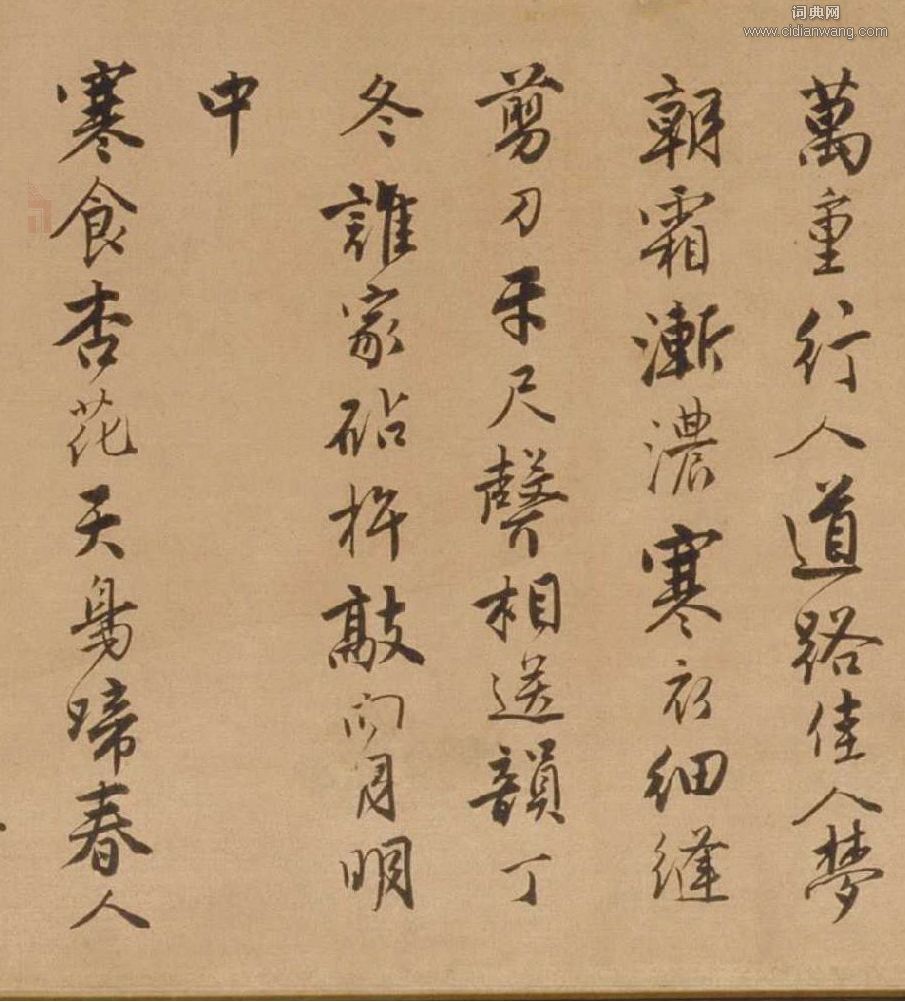 词典网
www.cidianwang.com
萬重行人道路佳人夢
朝霜漸濃寒衣細縫
剪刀牙尺聲相送韻丁
冬誰家砧杵敲向月明
中
寒食杏花天鳥啼春人